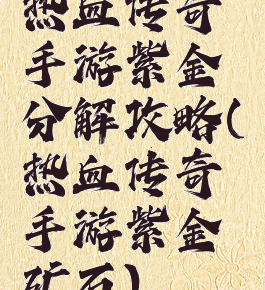 热血传奇
手游紫金
分解攻略(
热血传奇
手游紫金
矿石)